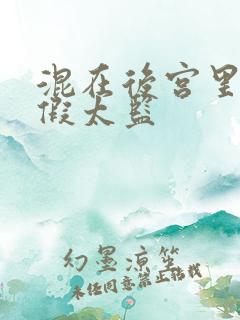 混在後宮里
假太監
幻墨涼笙
未经同意禁止转载